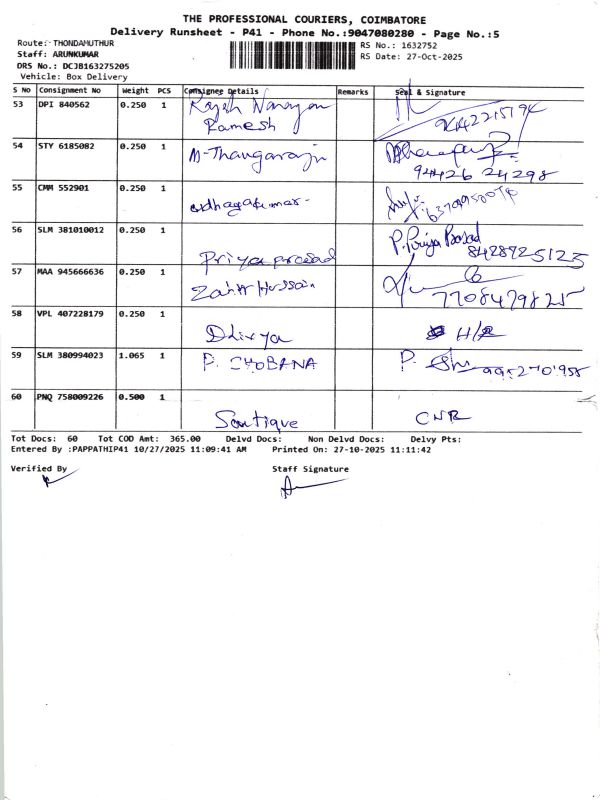 THE PROFESSIONAL COURIERS, COIMBATORE
Delivery Runsheet - P41 - Phone No.:9047080280 - Page No.:5
Route: THONDAMUTHUR
RS No.: 1632752
Staff: ARUNKUMAR
RS Date: 27-Oct-2025
DRS No.: DCJB163275205
Vehicle: Box Delivery
S No Consignment No Weight PCS Consignee Details Remarks Seal & Signature
53 DPI 840562 0.250 1 Rajesh Narayan
Ramesh
54 STY 6185082 0.250 1 M-Thangaraju
94426 24298
55 CMM 552901 0.250 1 udhayakumar-
56 SLM 381010012 0.250 1 Priya prasad P. Priya Prasad
8428925123
57 MAA 945666636 0.250 1 Zahir Hussain
7708479825
58 VPL 407228179 0.250 1 Dhivya
59 SLM 380994023 1.065 1 P. SHOBANA P.
60 PNQ 758009226 0.500 1 CNR
Tot Docs: 60 Tot COD Amt: 365.00 Delvd Docs: Non Delvd Docs: Delvy Pts:
Entered By :PAPPATHIP41 10/27/2025 11:09:41 AM Printed On: 27-10-2025 11:11:42
Verified By Staff Signature